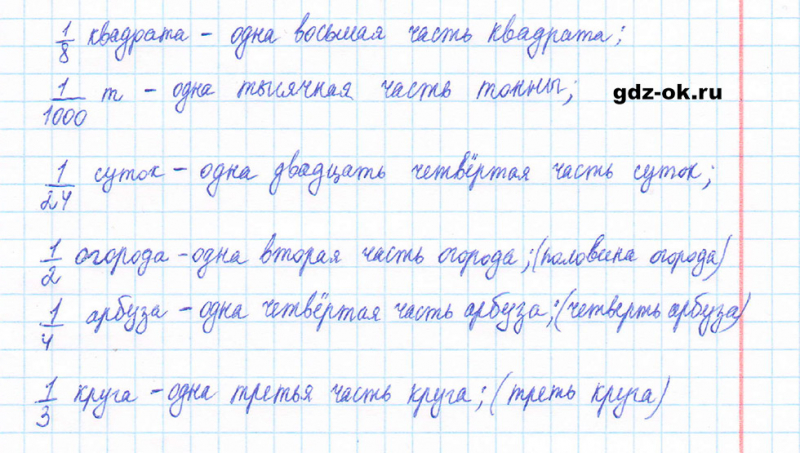 1/8 квадрата – одна восьмая часть квадрата;
1/1000 т – одна тысячная часть тонны;
gdz-ok.ru
1/24 суток – одна двадцать четвёртая часть суток;
1/2 огорода – одна вторая часть огорода; (половина огорода)
1/4 арбуза – одна четвёртая часть арбуза; (четверть арбуза)
1/3 круга – одна третья часть круга; (треть круга)